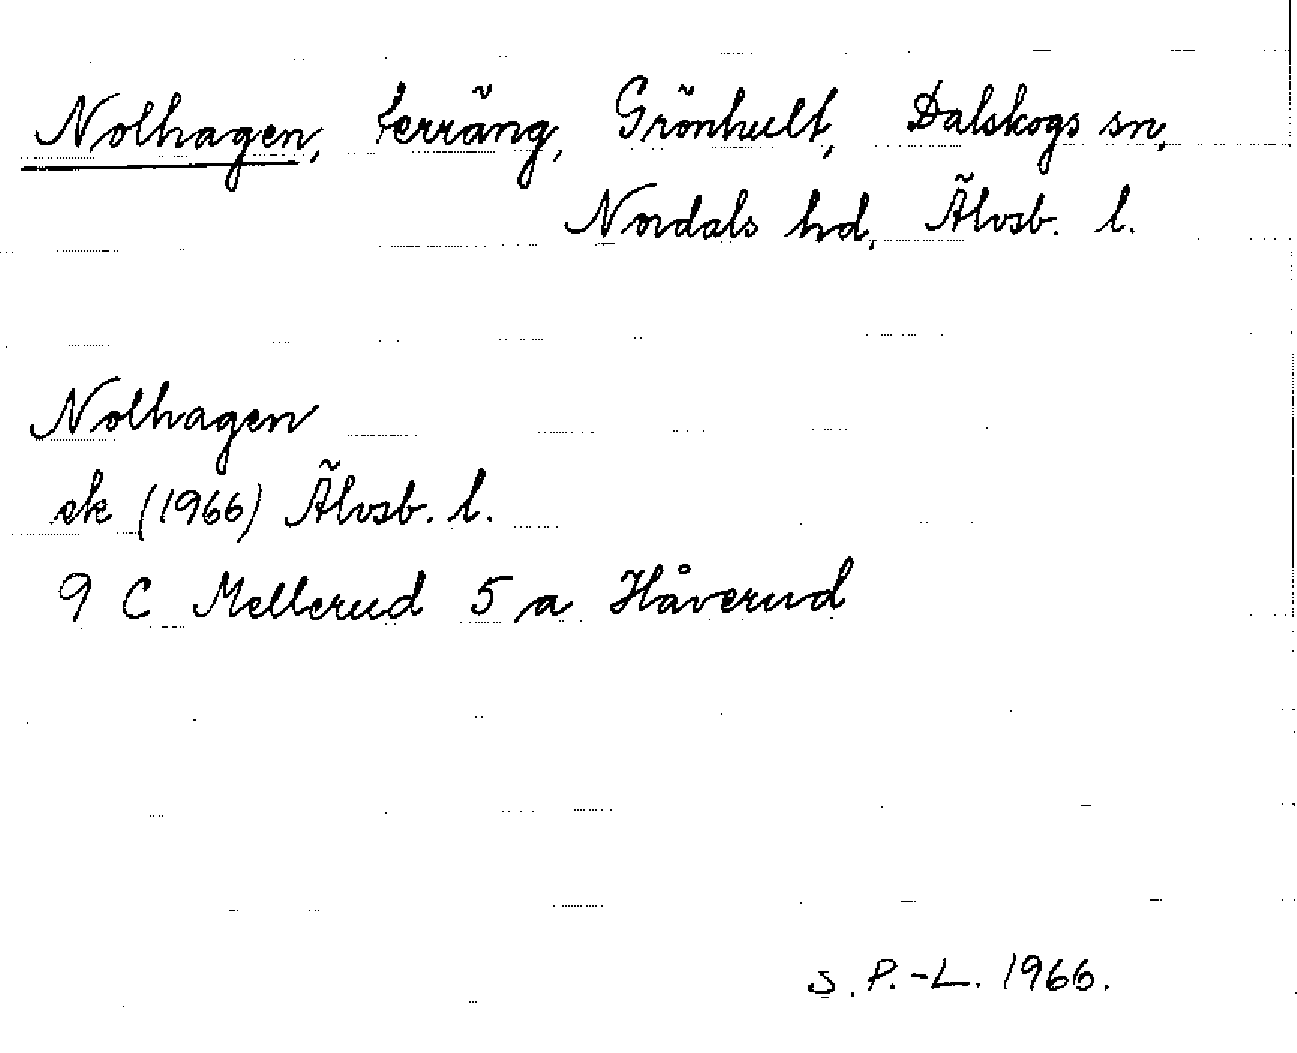 Nolhagen, terräng, Grönhult, Dalskogs sn,
Nordals hd, Älvsb. l.
Nolhagen
ek (1966) Älvsb. l.
9 C Mellerud 5 a Håverud
S. P.-L. 1966.